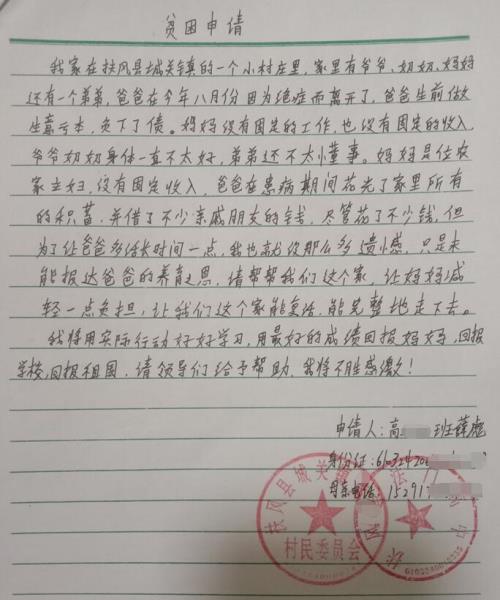 贫困申请
我家在扶风县城关镇的一个小村庄里,家里有爷爷、奶奶、妈妈
还有一个弟弟,爸爸在今年八月份因为绝症而离开了,爸爸生前做
生意亏本,负下了债。妈妈没有固定的工作,也没有固定的收入,
爷爷奶奶身体一直不太好,弟弟还不太懂事。妈妈是位农
家主妇,没有固定收入,爸爸在患病期间花光了家里所有
的积蓄,并借了不少亲戚朋友的钱,尽管花了不少钱,但
为了让爸爸多活长时间一点,我也就没那么多遗憾,只是未
能报达爸爸的养育之恩,请帮帮我们这个家,让妈妈减
轻一点负担,让我们这个家能复活,能完整地走下去。
我将用实际行动好好学习,用最好的成绩回报妈妈,回报
学校,回报祖国,请领导们给予帮助,我将不胜感激!
申请人:高 班薛彪
身份证:610324200
母亲电话:15291
扶风县城关镇
村民委员会